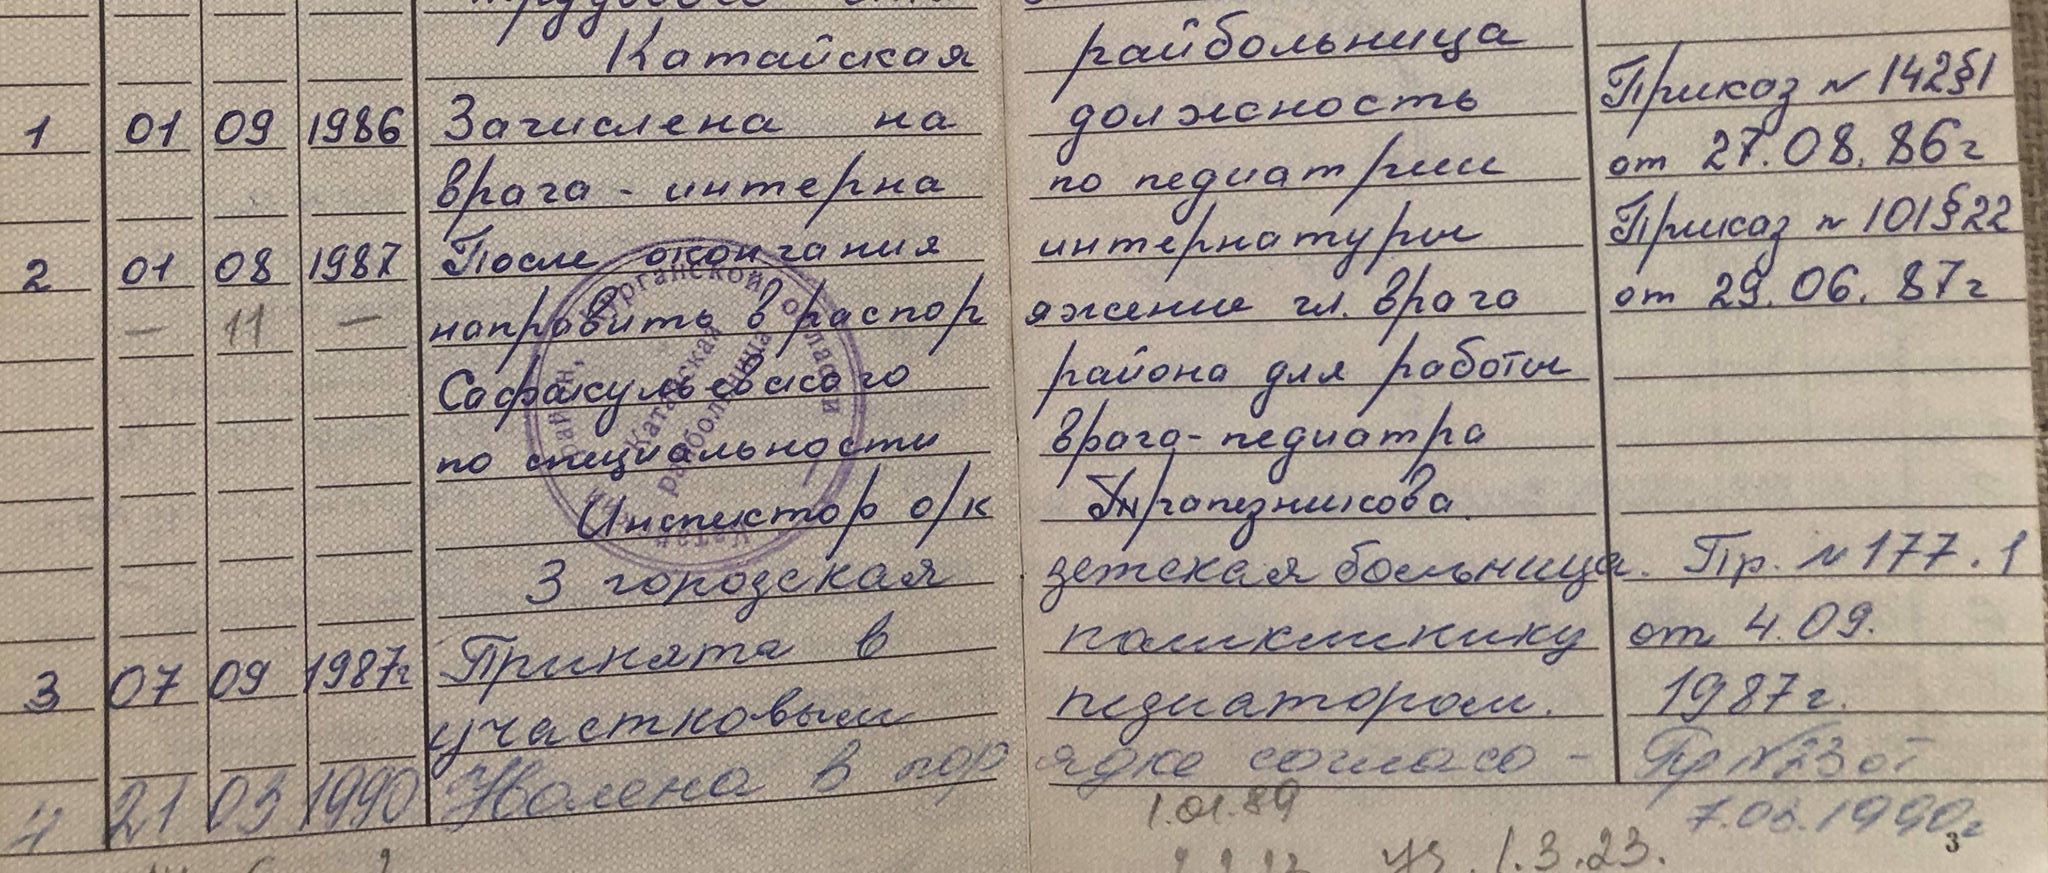 трудового
Катайская райбольница
1 01 09 1986 Зачислена на должность Приказ № 142§1
врача - интерна по педиатрии от 27.08.86г
2 01 08 1987 После окончания интернатуры Приказ № 101§22
— 11 — направить в распор яжение гл. врача от 29.06.87г
Сафакулевского района для работы
по специальности врача-педиатра
Инспектор о/к Трапезникова.
3 городская детская больница. Пр. № 177.1
3 07 09 1987г Принята в поликлинику от 4.09.
участковым педиатором. 1987г.
4 21 03 1990 Уволена в пор ядке согласо- Пр №23 от
1.01.89 7.03.1990г
уз. 1.3.23.
3
Курганской области
Катайская
райбольница